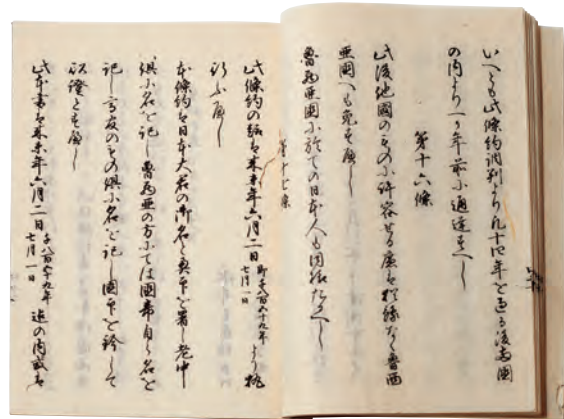 いへとも此條約調判より凡十四年を過る後両國
の内より一ヶ年前に通達すへし
第十六條
此後他國のものに許容せる廉を猶豫なく魯西
亜國へも免すへし
魯西亜國に於ての日本人も同様たるへし
第十七條
此條約の趣を来未年六月二日 即千八百五十九年七月一日 より執
行ふへし
本條約を日本大君の御名と奥印を署し老中
倶に名を記し魯西亜の方にては國帝自ら名を
記し高官のもの倶に名を記し國印を鈐して
以證とすへし
此本書を来未年六月二日 千八百五十九年七月一日 迄の内或は